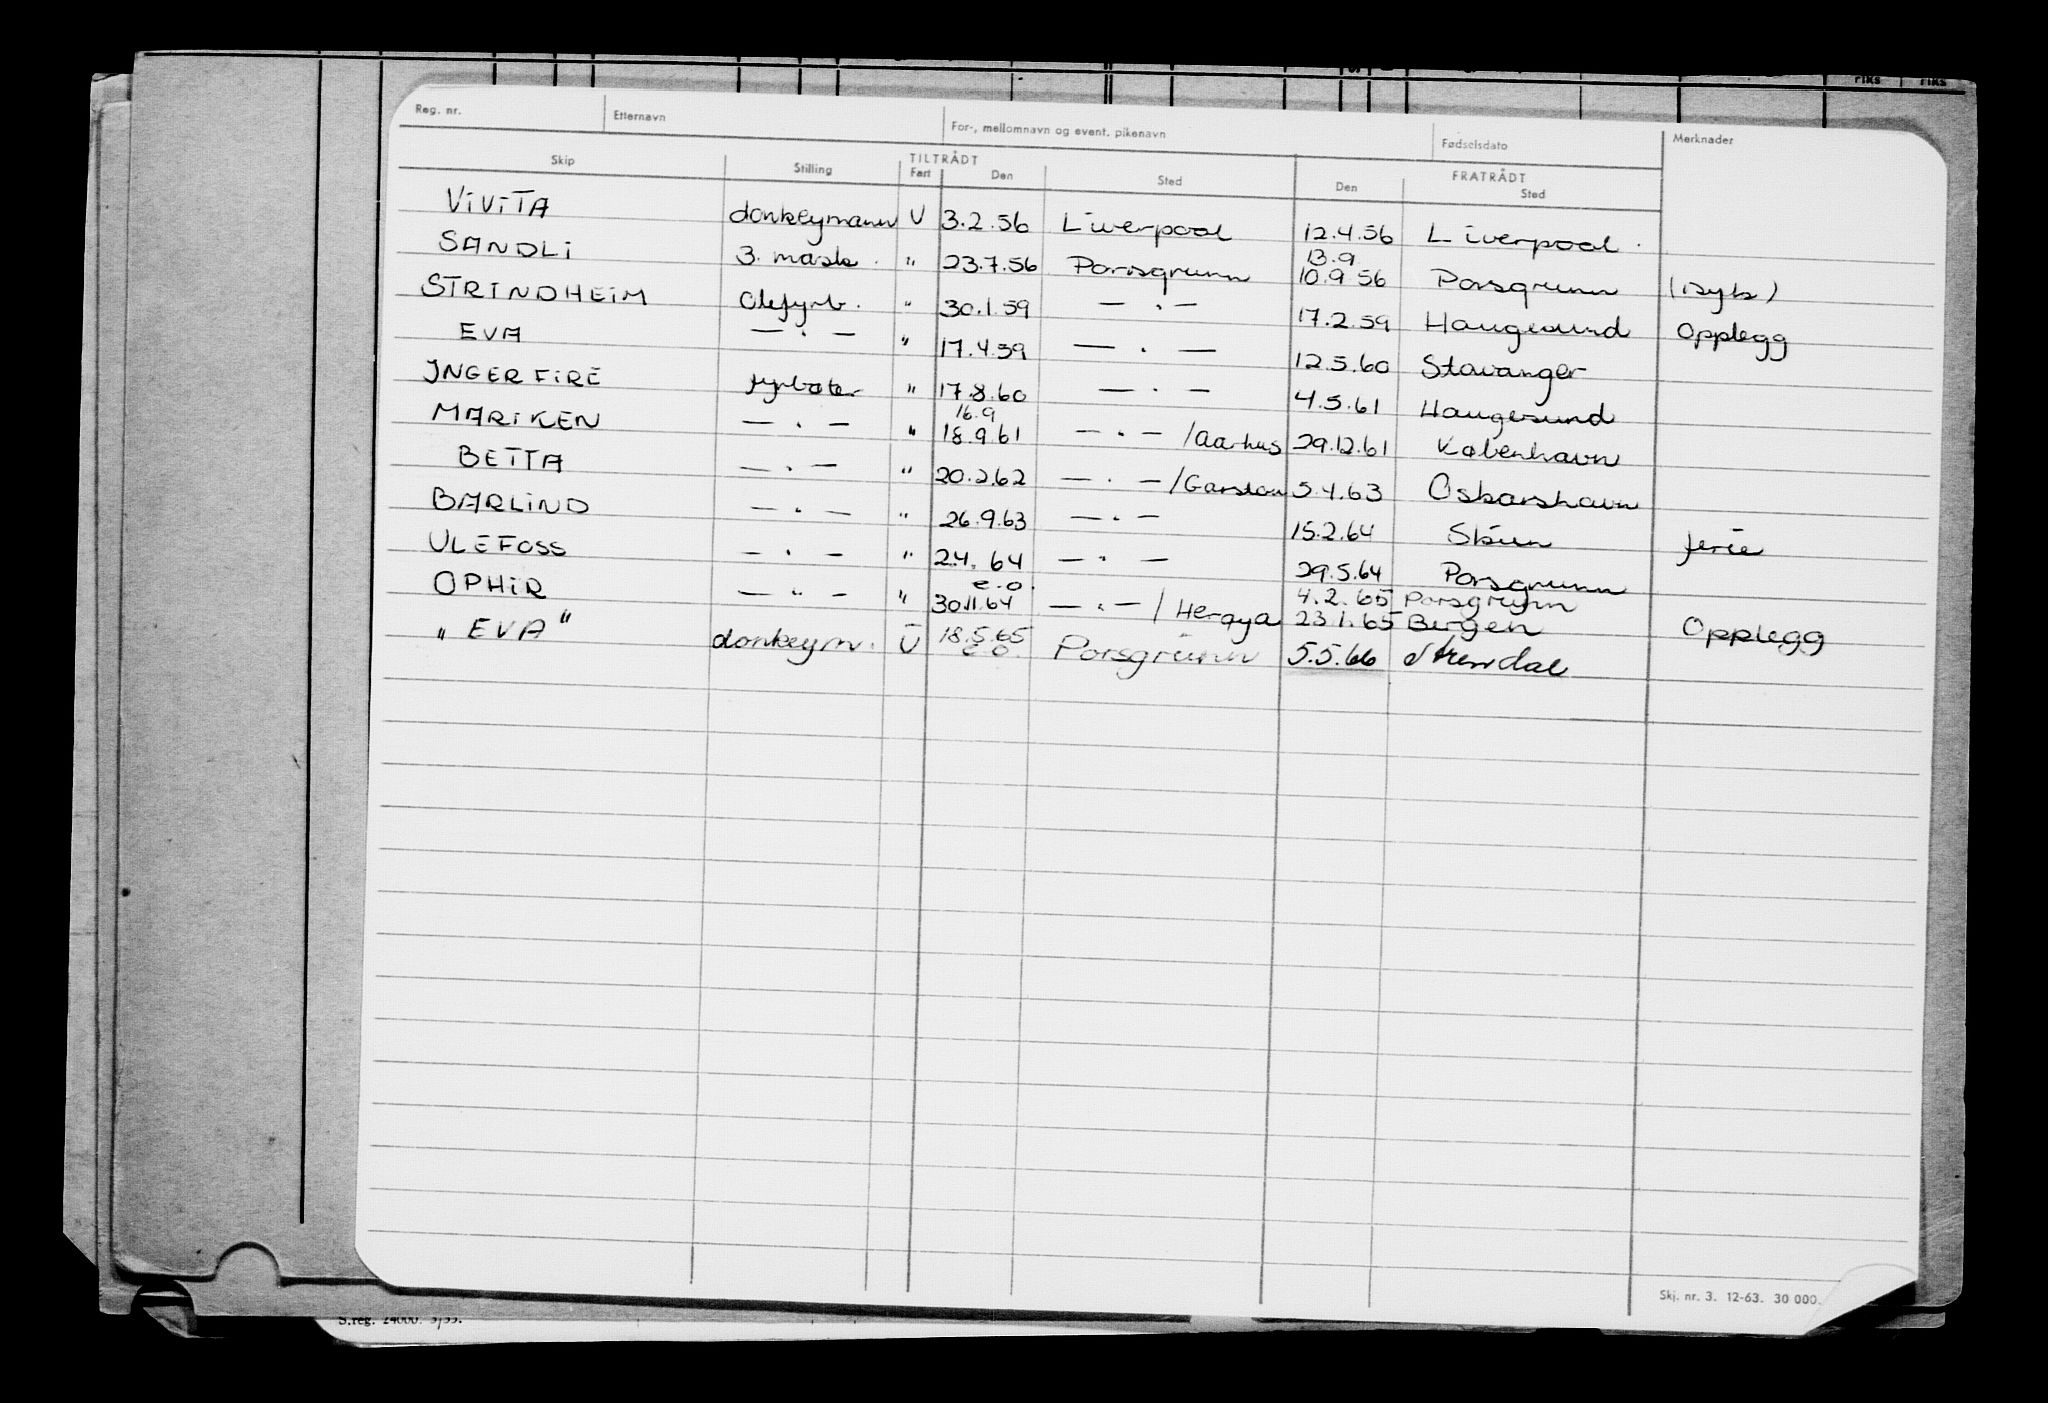 riks riks
Reg. nr. Etternavn For-, mellomnavn og event. pikenavn Fødselsdato Merknader
TILTRÅDT FRATRÅDT
Skip Stilling Fart Den Sted Den Sted
ViViTA donkeymann U 3.2.56 Liverpool 12.4.56 Liverpool
13.9
SANDLi 3. mask. " 23.7.56 Porsgrunn 10.9.56 Porsgrunn (isyk)
STRINDHEiM Olefyrb. " 30.1.59 — . — 17.2.59 Haugesund Opplegg
EVA — . — " 17.4.59 — . — 12.5.60 Stavanger
INGER FiRE fyrbøter " 17.8.60 — . — 4.5.61 Haugesund
16.9
MARiKEN — . — " 18.9.61 — . — /Aarhus 29.12.61 København
BETTA — . — " 20.2.62 — . — /Garston 5.4.63 Oskarshavn
BARLiND — . — " 26.9.63 — . — 15.2.64 Skien ferie
ULEFOSS — . — " 2.4. 64 — . — 29.5.64 Porsgrunn
e.o. 4.2.65 Porsgrunn
OPHiR — " — " 30.11.64 — . — / Herøya 23.1.65 Bergen Opplegg
"EVA" donkeym. U 18.5.65 Porsgrunn 5.5.66
e.o.
Skj. nr. 3. 12-63. 30 000.
S.reg. 24000. 3/55.